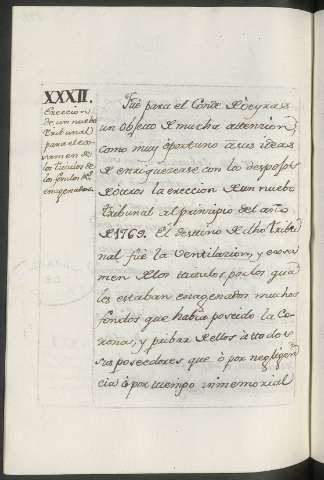 XXXII.
Ereccion
de un nuebo
Tribunal
para el exa-
men de
los titulos de
los fondos
enagenados.
Fué para el Conde de Oeyras
un objeto de mucha atencion,
como muy oportuno á sus ideas
de enriquezerse con los despojos
de otros la ereccion de un nuebo
Tribunal al principio del año
de 1769. El destino de dho tribu
nal fué la ventilacion, y exa
men de los titulos por los qua
les estaban enagenados muchos
fondos que habia poseido la Co-
rona, y pribar de ellos á todos
sus poseedores, que ó por negligen
cia ó por tiempo inmemorial